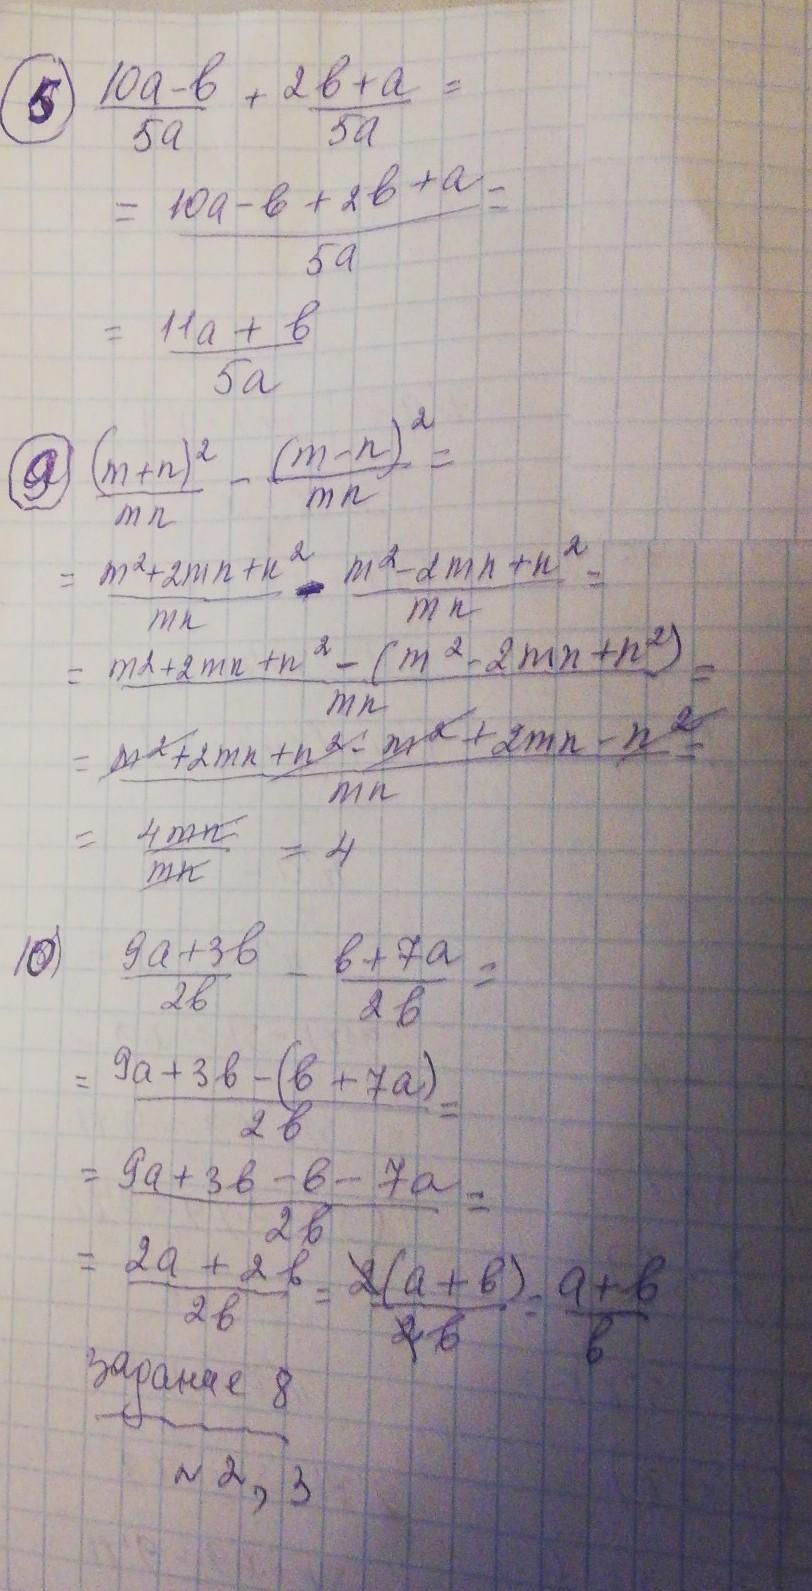 5 (10a-b)/5a + (2b+a)/5a =
= (10a-b+2b+a)/5a =
= (11a+b)/5a
9 (m+n)²/mn - (m-n)²/mn =
= (m²+2mn+n²)/mn - (m²-2mn+n²)/mn =
= (m²+2mn+n²-(m²-2mn+n²))/mn =
= (m²+2mn+n²-m²+2mn-n²)/mn =
= 4mn/mn = 4
10) (9a+3b)/2b - (b+7a)/2b =
= (9a+3b-(b+7a))/2b =
= (9a+3b-b-7a)/2b =
= (2a+2b)/2b = 2(a+b)/2b = (a+b)/b
Задание 8
~ 2, 3